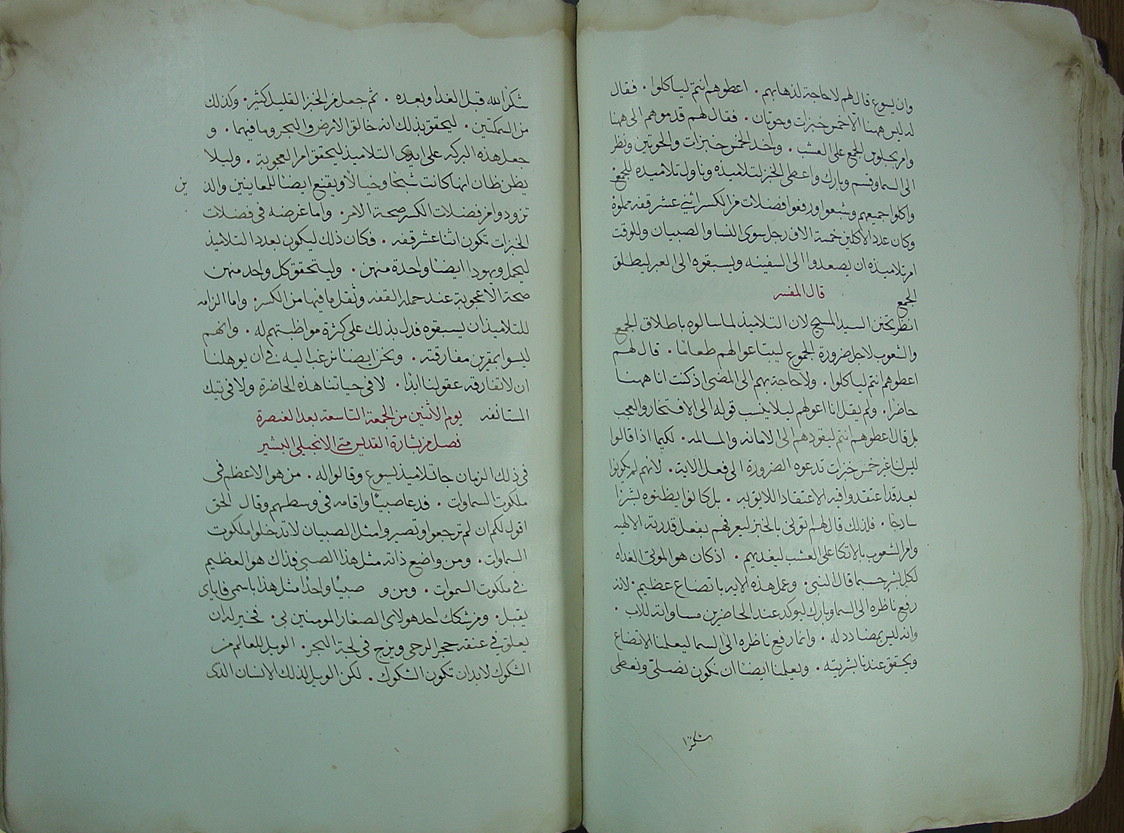 وان يسوع قال لهم لا حاجة لذهابهم . اعطوهم انتم لياكلوا . فقال
له ليس ههنا الا خمس خبزات وحوتان . فقال لهم قدموهم الى ههنا
وامر بجلوس الجمع على العشب . واخد الخمس خبزات والحوتين ونظر
الى السما وقسم وبارك واعطى الخبز لتلاميذه وناول تلاميذه للجمع
واكلوا جميعهم وشبعوا ورفعوا فضلات من الكسر اثني عشر قفه مملوة
وكان عدد الاكلين خمسة الاف رجل سوى النسا والصبيان وللوقت
امر تلاميذه ان يصعدوا الى السفينه ويسبقوه الى العبر ليطلق
الجمع
قال المفسر
انظر تحنن السيد المسيح لان التلاميذ لما سالوه باطلاق الجمع
والشعوب لاجل ضرورة الجموع ليبتاعوا لهم طعامًا . قال لهم
اعطوهم انتم لياكلوا . ولا حاجة بهم الى المضى اذ كنت انا ههنا
حاضرًا . ولم يقل انا اعولهم ليلا ينسب قوله الى الافتخار والعجب
بل قال اعطوهم انتم ليقودهم الى الامانه والمسالمه . لكيما اذا قالوا
ليس لنا غير خمس خبزات تدعوه الضرورة الى فعل الايه . لانهم لم يكونوا
بعد قد اعتقدوا فيه الاعتقاد اللايق به . بل كانوا يظنوه بشرًا
سادجًا . فلذلك قال لهم توني بالخبز ليعرفهم بفعل قدرته الالهيه
وامر الشعوب بالاتكا على العشب ليغديهم . اذ كان هو الموتى الغداه
لكل بشر حسبما قال النبي . وعمل هذه الايه باتضاع عظيم . لانه
رفع ناظره الى السما وبارك ليوكد عند الحاضرين مساواته للاب .
وانه ليس بمضادد له . وانما رفع ناظره الى السما ليعلمنا الاتضاع
ويحقق عندنا بشريته . ويعلمنا ايضًا ان نكون نصلى ونعطى
شكرًا
شكرًا لله قبل الغدا وبعده . ثم جعل من الخبز القليل كثير . وكذلك
من السمكتين . ليحقق بذلك انه خالق الارض والبحر وما فيهما . و
جعل هذه البركه على ايدى التلاميذ ليحقق امر العجوبة . وليلا
يظن ظان انها كانت شبحًا وخيالًا ويقنع ايضًا للمعاينين والد
ين
تزودوا من فضلات الكسر صحة الامر . واما غرضه في فضلات
الخبزات تكون اثنا عشر قفه . فكان ذلك ليكون بعدد التلاميذ
ليحمل ويهودا ايضًا واحدة منهن . وليتحقق كل واحد منهن
صحة الاعجوبة عند حمله القفه وثقل ما فيها من الكسر . واما الزامه
للتلاميذ ان يسبقوه فدل بذلك على كثرة مواظبتهم له . وانهم
ليسوا بمقرين مفارقته . ونحن ايضًا نرغب اليه في ان يوهلنا
ان لا تفارقه عقولنا ابدًا . لا في حياتنا هذه الحاضرة ولا في تيك
المستانفه يوم الاثنين من الجمعة التاسعة بعد العنصرة
فصل من بشارة القديس متى الانجيلي البشير
في ذلك الزمان جا تلاميذ يسوع وقالوا له . من هو الاعظم في
ملكوت السماوات . فدعا صبيًا واقامه في وسطهم وقال الحق
اقول لكم ان لم ترجعوا وتصيروا مثل الصبيان لا تدخلوا ملكوت
السماوات . ومن واضع ذاته مثل هذا الصبى فذاك هو العظيم
في ملكوت السموات . ومن و صبيًا واحدًا مثل هذا باسمى فاياى
يقبل . ومن شكك احد هولاى الصغار المومنين بى . فخير له ان
يعلق في عنقه حجر الرحى ويزج في لجة البحر . الويل للعالم من
الشكوك لابد ان تكون الشكوك . لكن الويل لذلك الانسان الذى